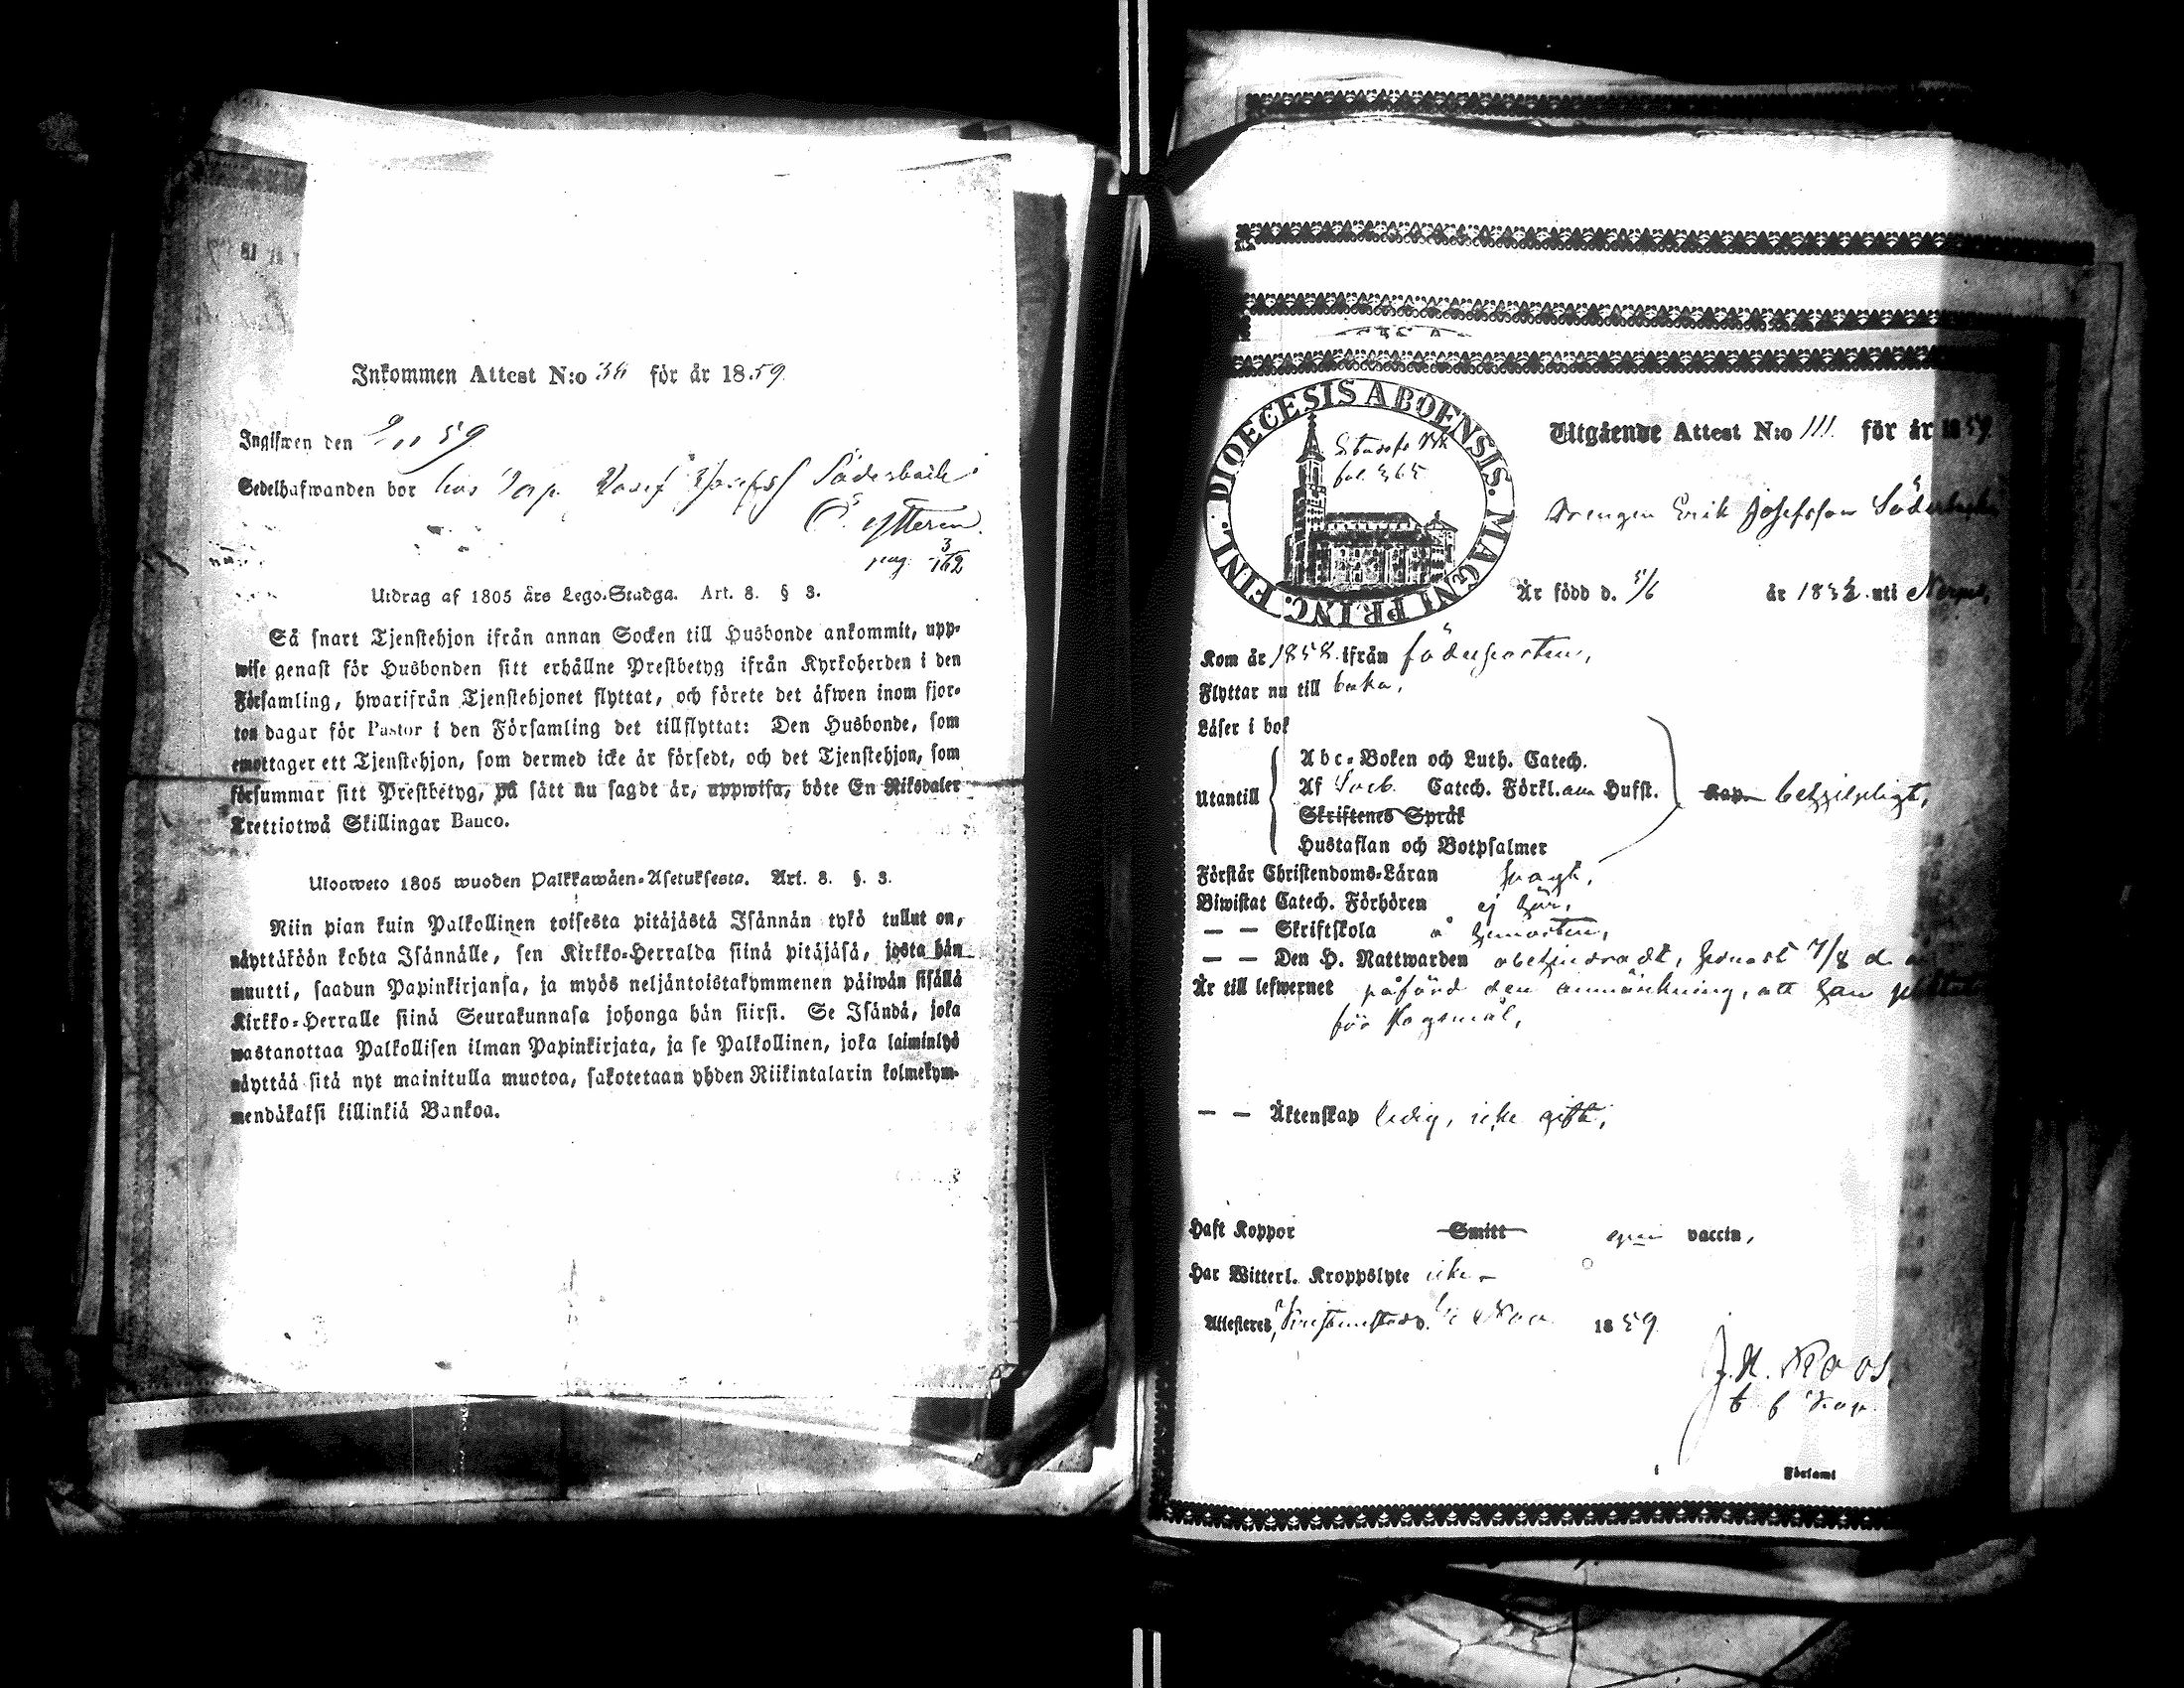 Inkommen Attest N:o 38 för år 1859
Ingifwen den 9/11 59
Sedelhafwanden bor hos Torp. Josef Josefss Söderback i
Ö. yttermark
pag 162
3
Utdrag af 1805 års Lego-Stadga. Art. 8. § 3.
Så snart Tjenstehjon ifrån annan Socken till Husbonde ankommit, upp-
wise genast för Husbonden sitt erhållne Prestbetyg ifrån Kyrkoherden i den
Församling, hwarifrån Tjenstehjonet flyttat, och förete det åfwen inom fjor-
ton dagar för Pastor i den Församling det tillflyttat: Den Husbonde, som
emottager ett Tjenstehjon, som dermed icke är försedt, och det Tjenstehjon, som
försummar sitt Prestbetyg, på sätt nu sagdt är, uppwisa, böte En Riksdaler
Trettiotwå Skillingar Banco.
Ulosweto 1805 wuoden Palkkawäen-Asetuksesta. Art. 8. §. 3.
Niin pian kuin Palkollinen toisesta pitäjästä Isännän tykö tullut on,
näyttäköön kohta Isännälle, sen Kirkko-Herralda siinä pitäjäsä, josta hän
muutti, saadun Papinkirjansa, ja myös neljäntoistakymmenen päiwän sisällä
Kirkko-Herralle siinä Seurakunnasa johonga hän siirsi. Se Isändä, joka
wastanottaa Palkollisen ilman Papinkirjata, ja se Palkollinen, joka laiminlyö
näyttää sitä nyt mainitulla muotoa, sakotetaan yhden Riikintalarin kolmekym-
mendäkaksi killinkiä Bankoa.
DIOECESIS ABOENSIS. MAGNI PRINC. FINL.
fol. 365
Utgående Attest N:o 111. för år 1859
Drengen Erik Josefsson Söderback
Är född d. 5/6 år 1832 uti Nerpes,
Kom år 1858 ifrån födelseorten,
Flyttar nu till baka,
Läser i bok
Utantill
Abc-Boken och Luth. Catech.
Af Sveb. Catech. Förkl. Hufst.
Skriftenes Språk
Hustaflan och Botpsalmer
Kap. behjelpligt,
Förstår Christendoms-Läran svagt,
Biwistat Catech. Förhören ej här,
— — Skriftskola å hemorten,
— — Den H. Nattwarden obehindradt, senast 7/8 d. å
Är till lefwernet påförd den anmärkning, att han
för slagsmål,
— — Äktenskap ledig, icke gift,
Haft Koppor Smitt egen vaccin,
Har Witterl. Kroppslyte icke –
Attesteras, Kristinestads Nov. 1859
J. H. Roos.
t. f. Kap.
Församl